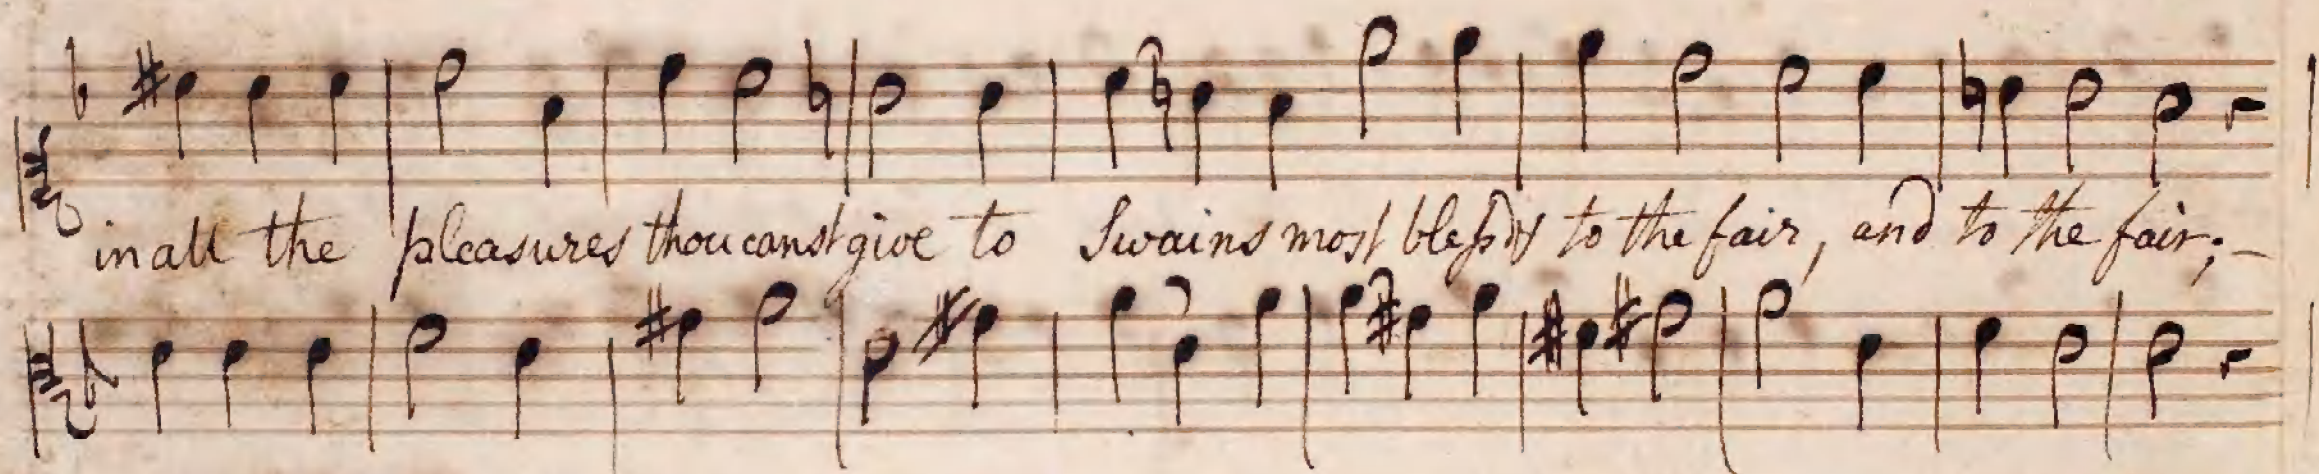 in all the pleasures thou canst give to Swains most bless'd & to the fair, and to the fair;